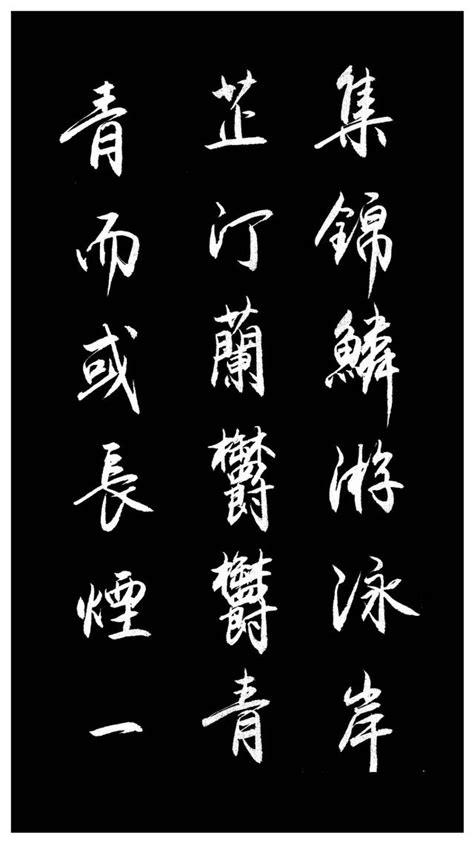 集錦鱗游泳岸
芷汀蘭欝欝青
青而或長煙一